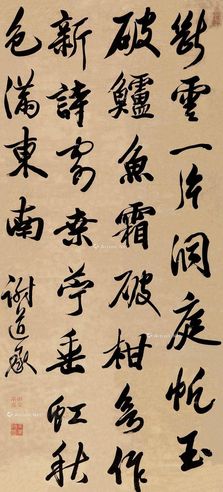 斷雲一片洞庭帆玉
破鱸魚霜破柑好作
新詩寄桑苧垂虹秋
色滿東南
謝道承